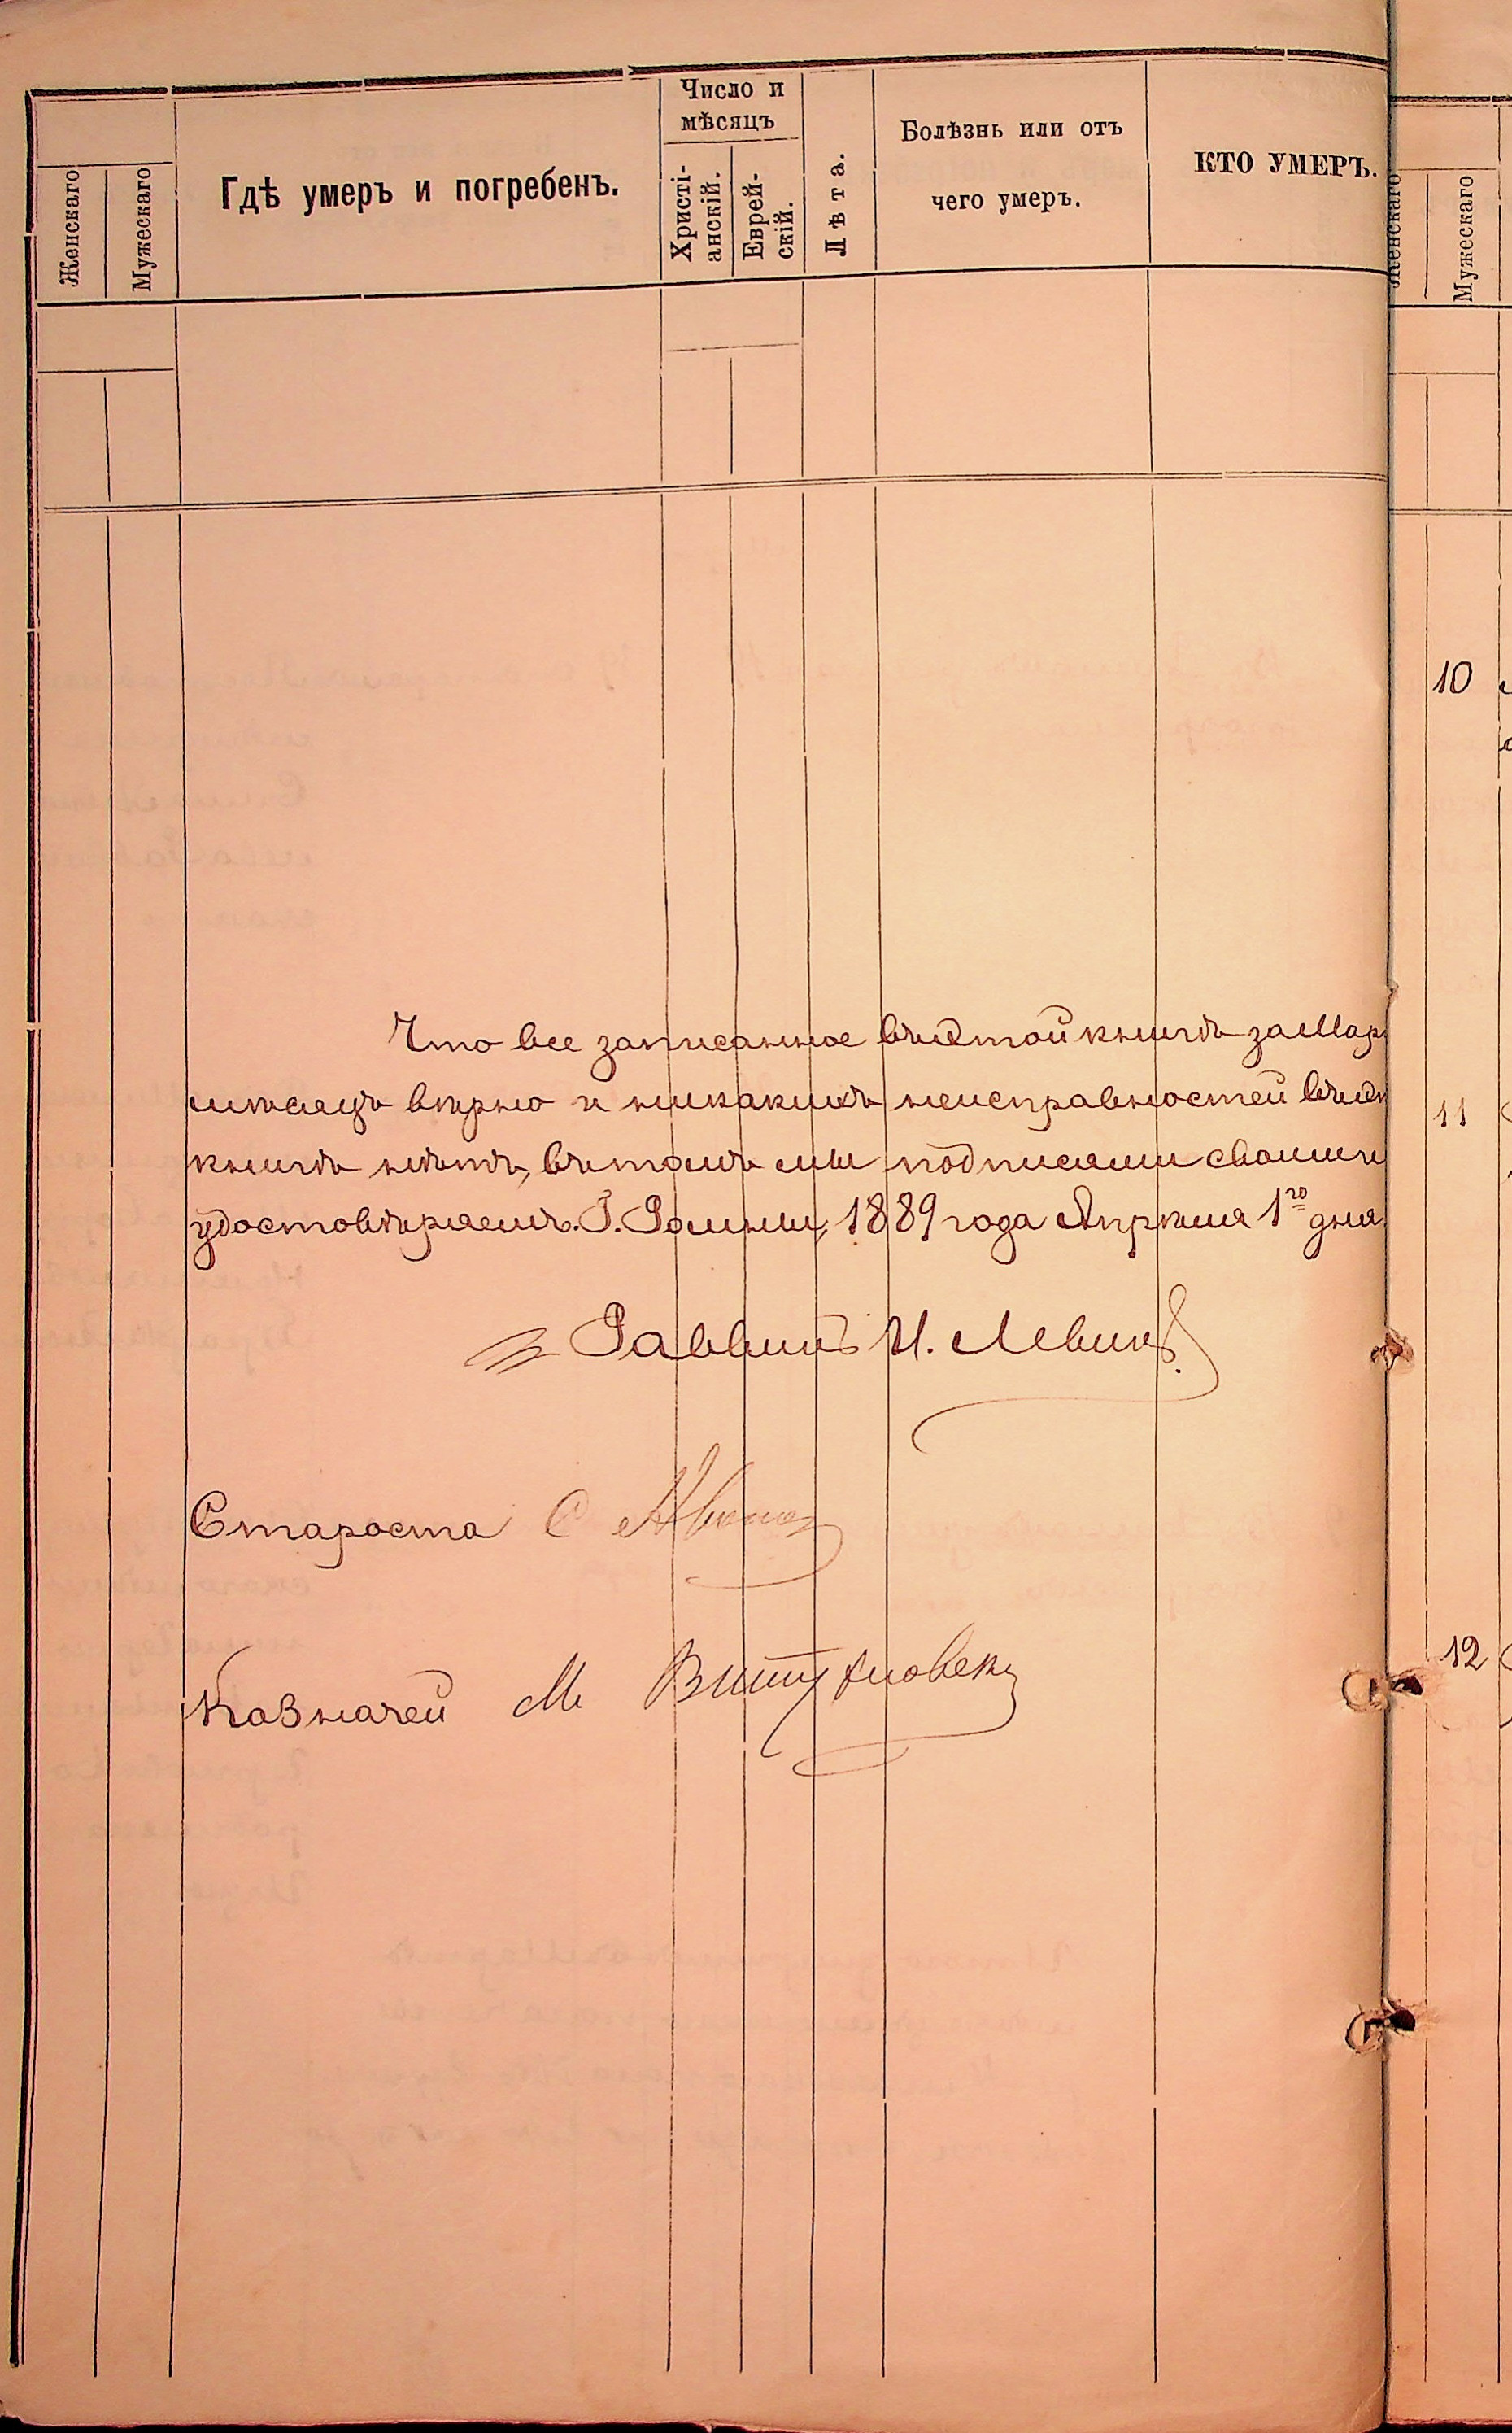 Женскаго
Мужескаго
Гдѣ умеръ и погребенъ.
Число и
мѣсяцъ
Христі-
анскій.
Еврей-
скій.
Лѣта.
Болѣзнь или отъ
чего умеръ.
КТО УМЕРЪ.
Что все записанное въ этой книгѣ за Мар
мѣсяцъ вѣрно и никакихъ неисправностей въ
книгѣ нѣтъ, въ томъ мы подписями своими
удостовѣряемъ. Г. Ромны, 1889 года Апрѣля 1го дня.
Раввинъ И. Левинъ.
Староста С
Казначей М
Женскаго
Мужескаго
10
11
12